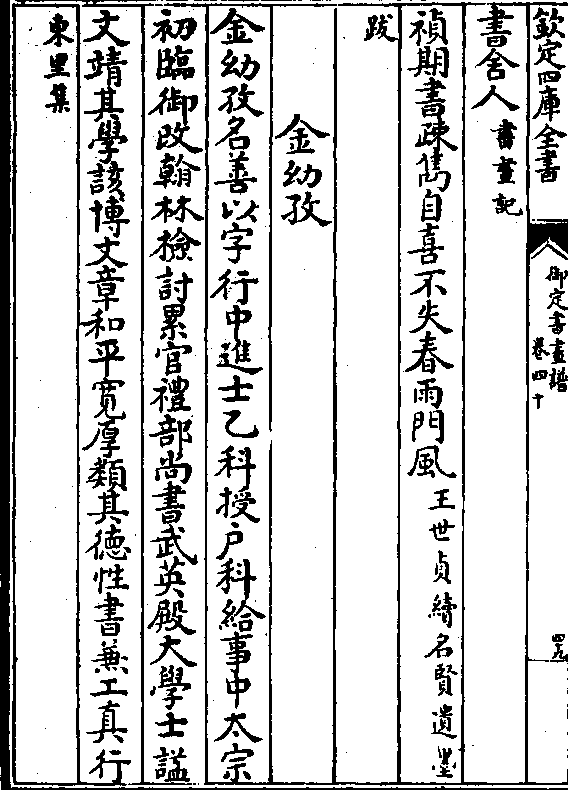 欽定四庫全書
御定書畫譜
卷四十
四九
書舍人書畫記
禎期書疎雋自喜不失春雨門風王世貞續名賢遺墨
跋
金幼孜
金幼孜名善以字行中進士乙科授戶科給事中太宗
初臨御改翰林檢討累官禮部尚書武英殿大學士諡
文靖其學該博文章和平寛厚類其德性書兼工真行
東里集